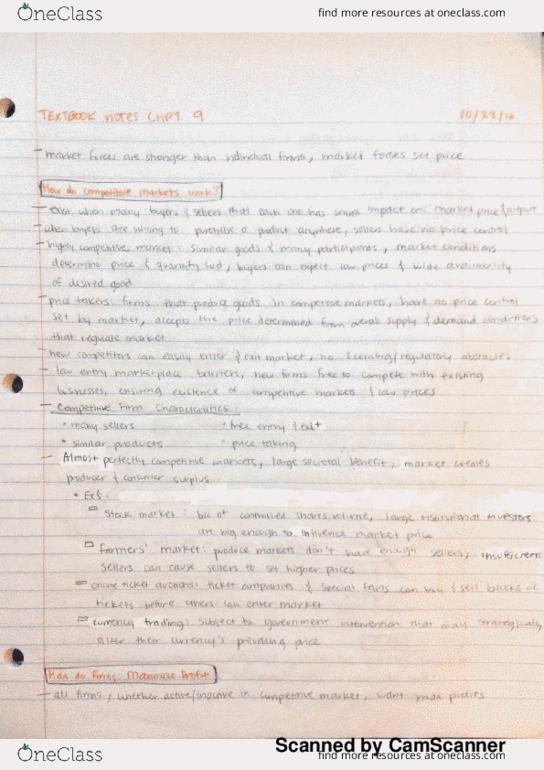 OneClass
find more resources at oneclass.com
TEXTBOOK NOTES CHPT. 9 10/23/16
- market forces are stronger than individual firms, market forces set price
How do competitive markets work?
- exist when many buyers & sellers that each one has small impact on market price/output
- when buyers are willing to purchase a product anywhere, sellers have no price control
- highly competitive market: similar goods & many participants, market conditions
determine price & quantity sold, buyers can expect low prices & wide availability
of desired good
- price takers: firms that produce goods in competitive markets, have no price control
set by market, accepts the price determined from overall supply & demand conditions
that regulate market
- new competitors can easily enter & exit market, no licensing/regulatory obstacles
- low entry marketplace barriers, new firms free to compete with existing
businesses, ensuring existence of competitive markets & low prices
- Competitive Firm Characteristics:
• many sellers • free entry/exit
• similar products • price taking
- Almost perfectly competitive markets, large societal benefit, market creates
producer & consumer surplus
• Exs:
Stock market: bic of controlled shares volume, large institutional investors
are big enough to influence market price
Farmers' market: produce markets don't have enough sellers, insufficient
sellers can cause sellers to set higher prices
online ticket auctions: ticket companies & special fans can buy & sell blocks of
tickets before others can enter market
currency trading: subject to government intervention that may strategically
alter their currency's prevailing price
How do Firms Maximize Profit?
- all firms, whether active/inactive in competitive market, want max profits
Scanned by CamScanner
OneClass
find more resources at oneclass.com